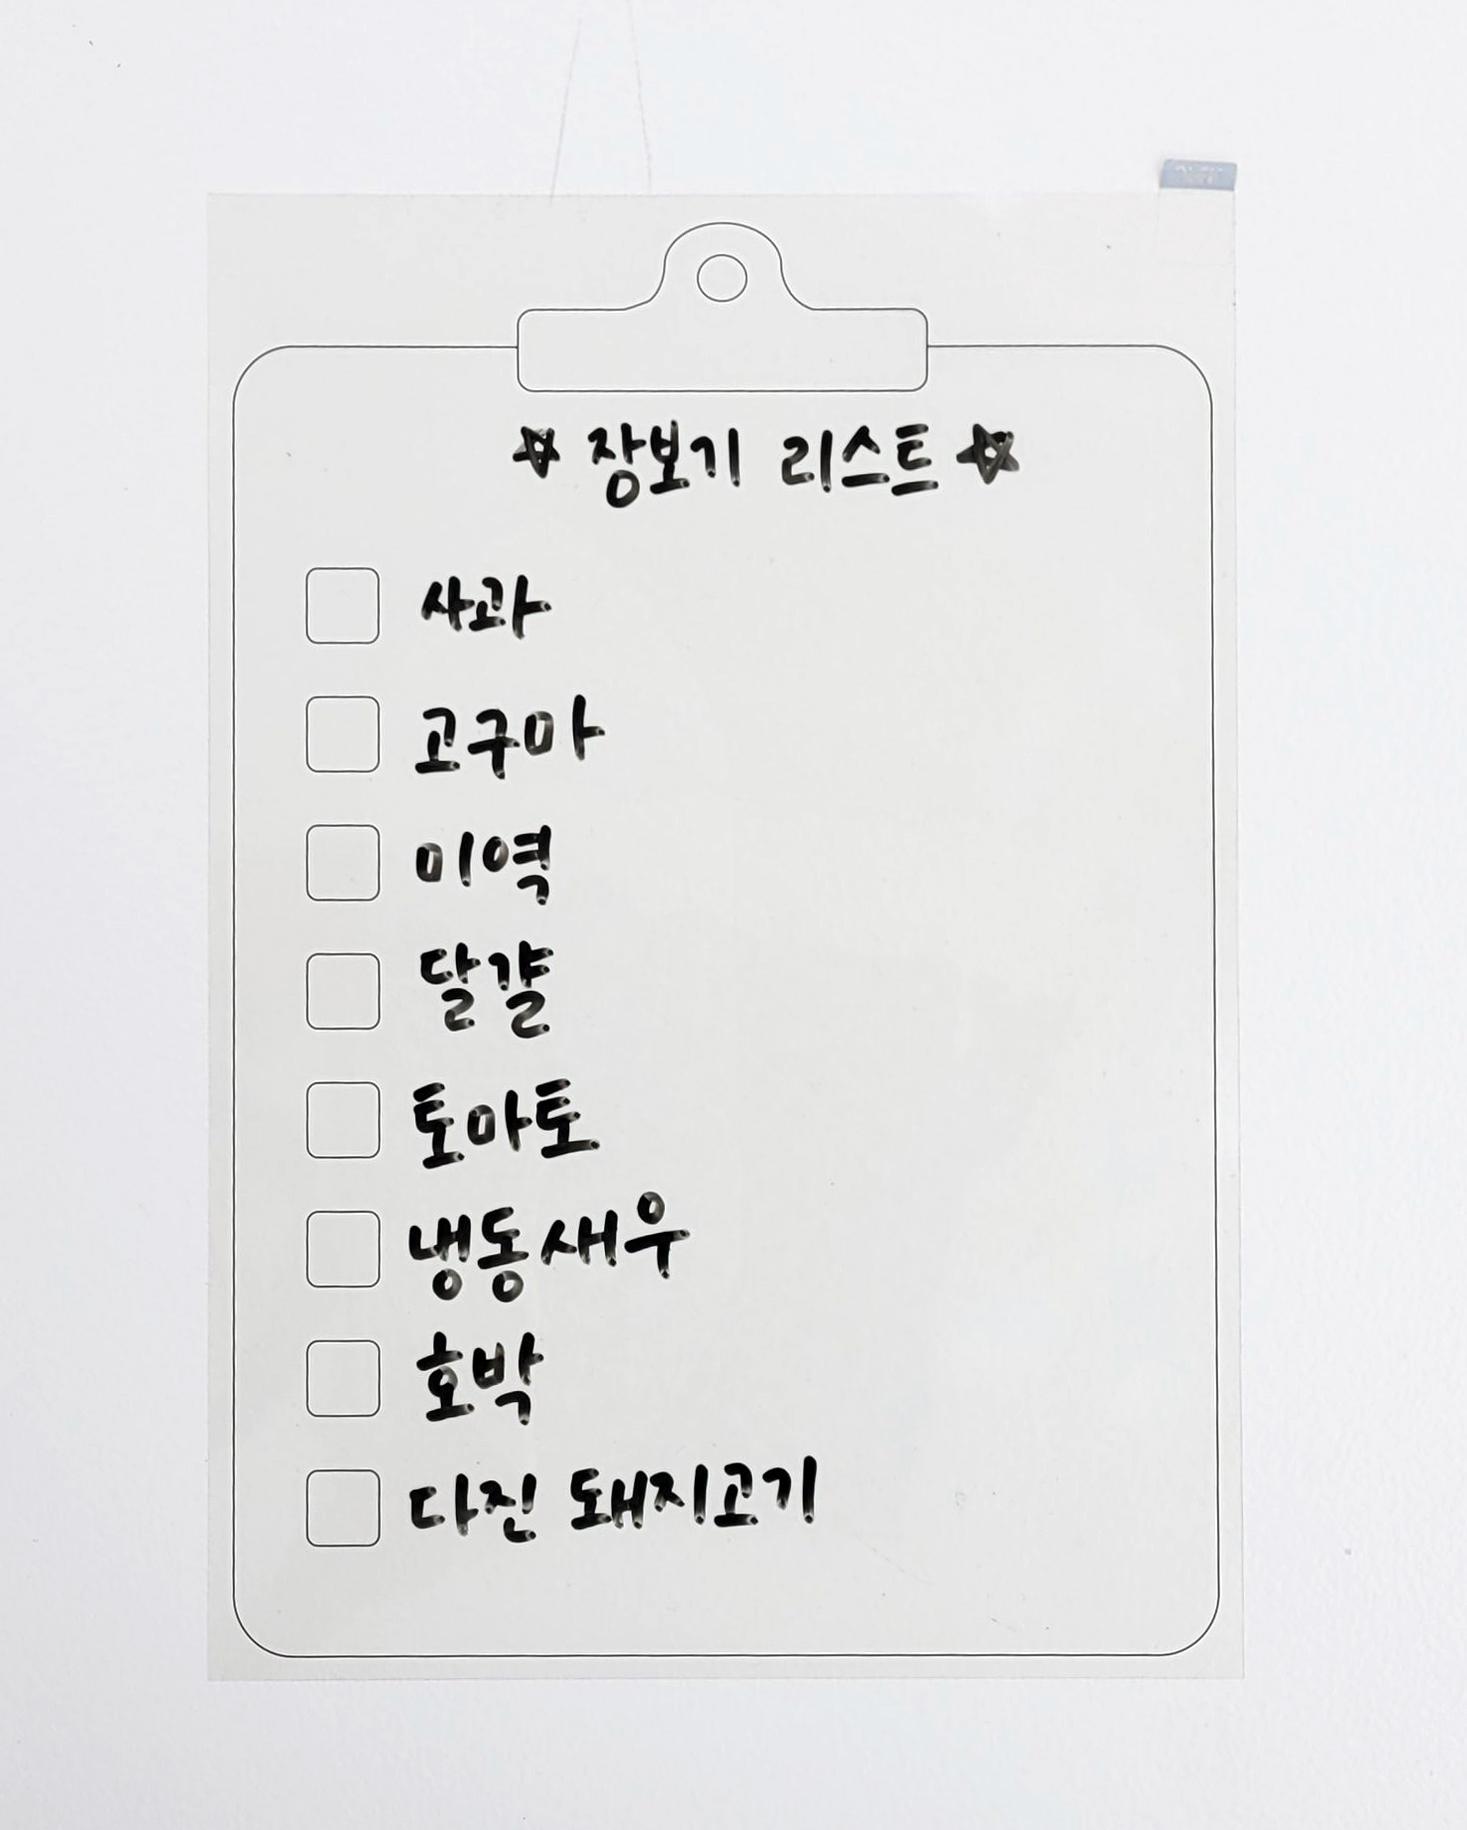 ☆ 장보기 리스트 ☆
사과
고구마
미역
달걀
토마토
냉동새우
호박
다진 돼지고기